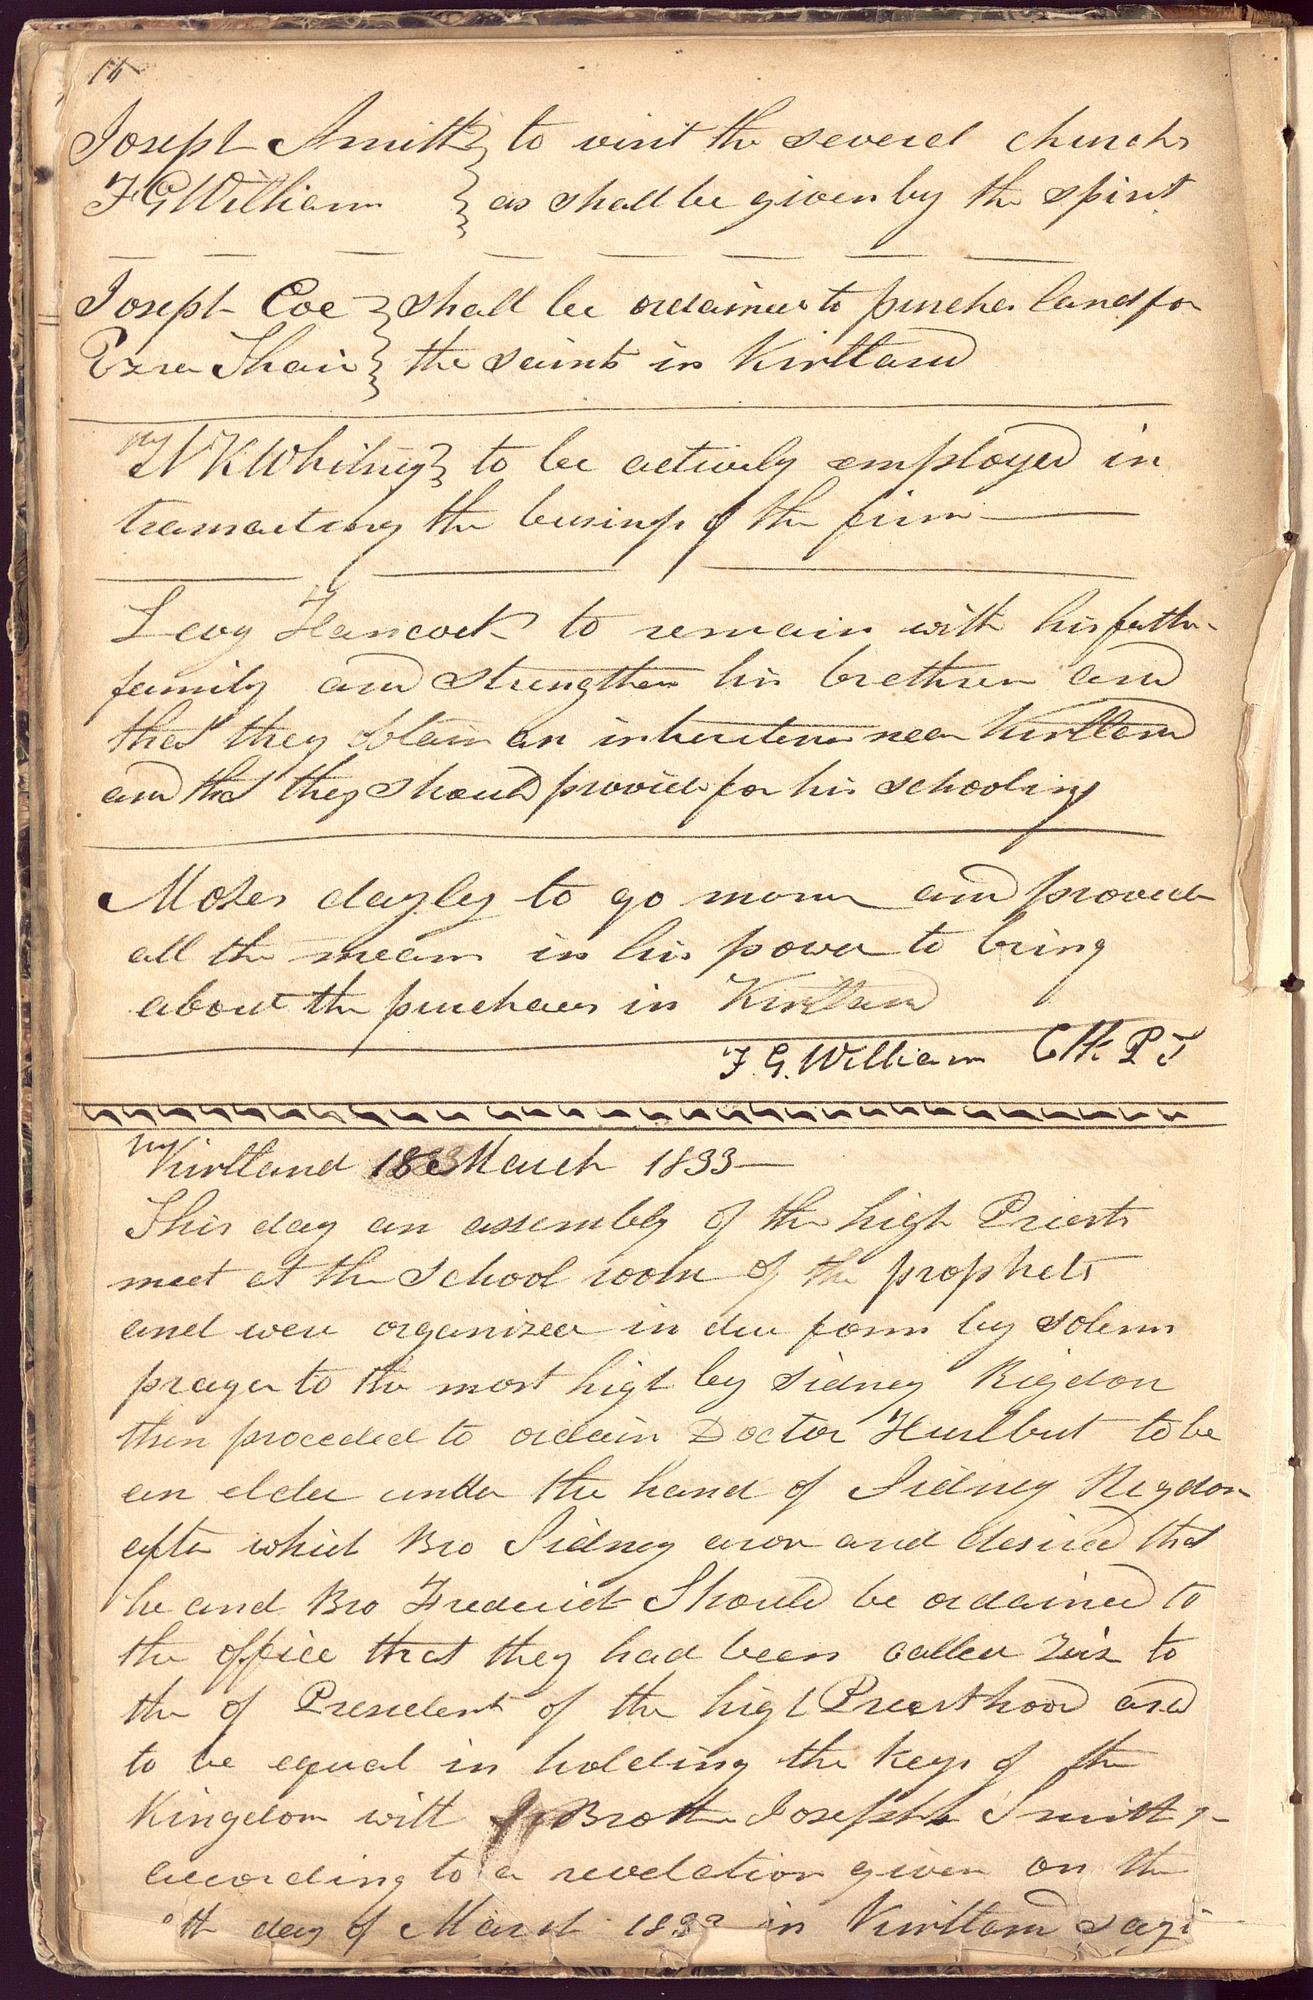 16
Joseph Smith } to visit the several churchs
F G William } as shall be given by the spirit
Joseph Coe } shall be ordained to purches land for
Ezra Thair } the saints in Kirtland
N K Whitney } to be actively employed in
transacting the business of the firm
Levy Hancock to remain with his father
family and strengthen his brethren and
that they obtain an inheritence near Kirtland
and that they should provide for his schooling
Moses dayley to go morn and provide
all the means in his power to bring
about the purchaes in Kirtland
F. G. William Clk. P T
Kirtland 18 March 1833—
This day an assembly of the high Priests
meet at the School room of the prophets
and were organized in due form by solemn
prayer to the most high by Sidney Rigdon
then proceded to ordain Doctor Hurlbut to be
an elder under the hand of Sidney Regdon
after which Bro Sidney arose and desired that
he and Bro Frederick Should be ordained to
the office that they had been called Viz to
the of President of the high Priesthood and
to be equal in holding the Keys of the
Kingdom with Brother Joseph Smith Jr
according to a revelation given on the
8th day of March 1833 in Kirtland sayi